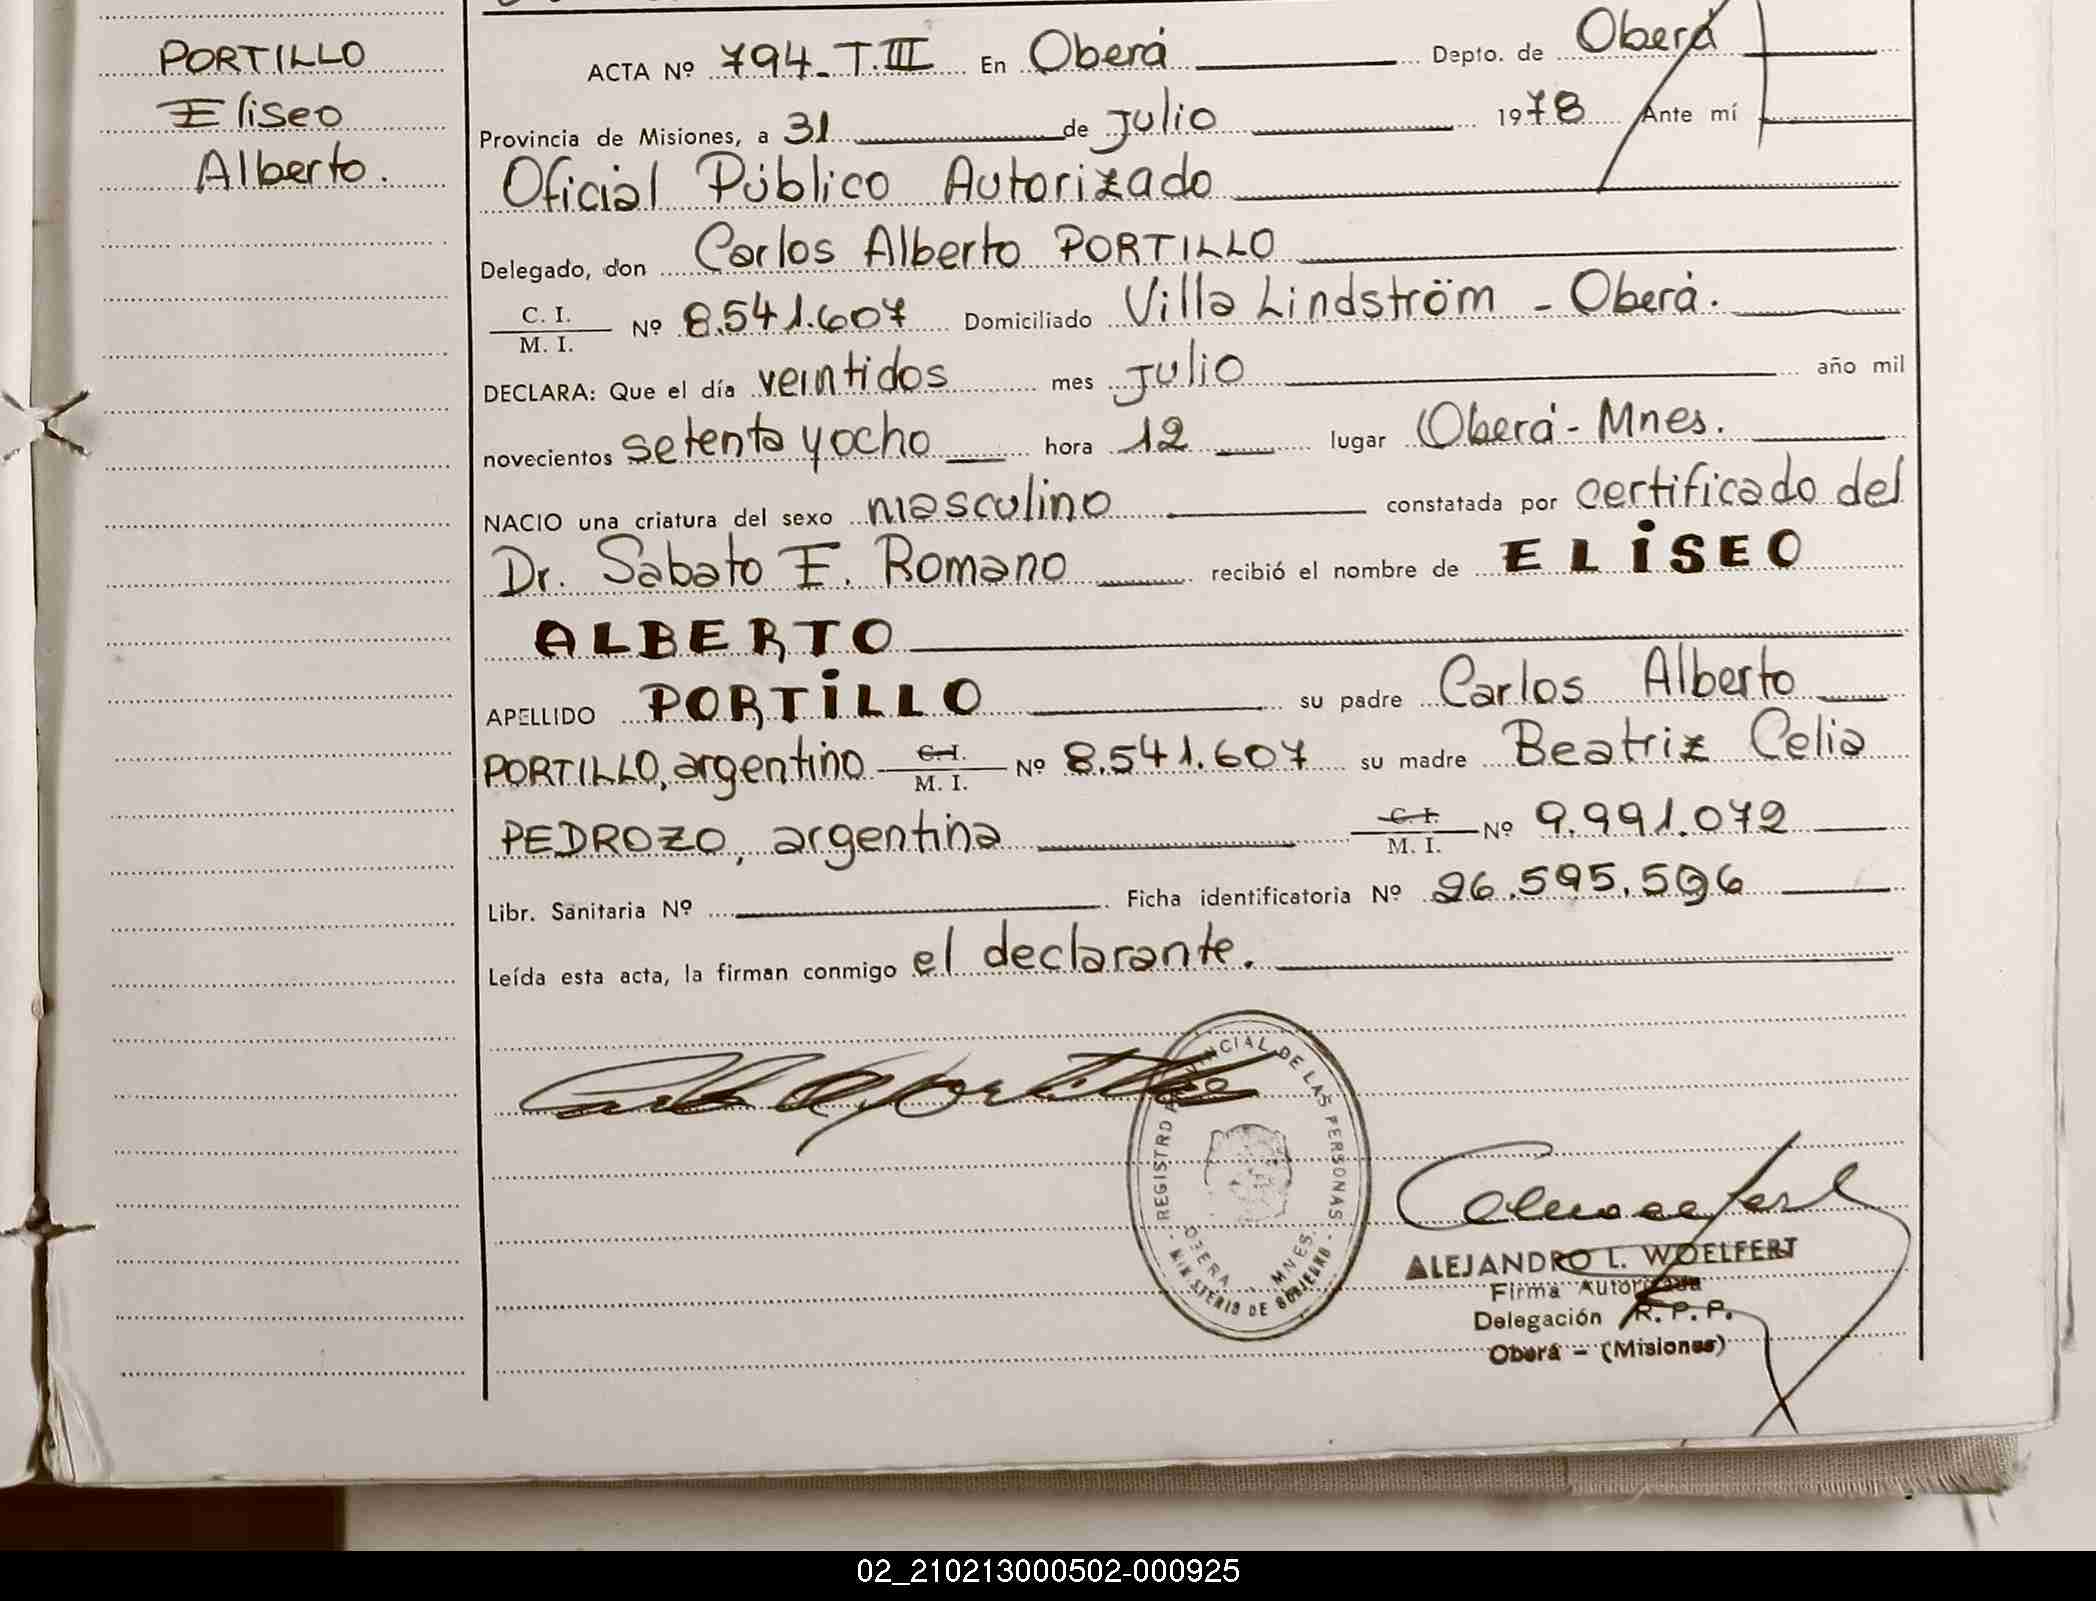 PORTILLO
Eliseo
Alberto.
ACTA Nº 794-T.III En Oberá Depto. de Oberá
Provincia de Misiones, a 31 de Julio 1978 Ante mí
Oficial Público Autorizado
Delegado, don Carlos Alberto PORTILLO
C. I.
M. I. Nº 8.541.607 Domiciliado Villa Lindström - Oberá.
DECLARA: Que el día veintidos mes Julio año mil
novecientos setenta y ocho hora 12 lugar Oberá - Mnes.
NACIO una criatura del sexo masculino constatada por certificado del
Dr. Sabato E. Romano recibió el nombre de ELISEO
ALBERTO
APELLIDO PORTILLO su padre Carlos Alberto
PORTILLO, argentino C.I. M. I. Nº 8.541.607 su madre Beatriz Celia
PEDROZO, argentina C. I. M. I. Nº 9.991.072
Libr. Sanitaria Nº Ficha identificatoria Nº 26.595.596
Leída esta acta, la firman conmigo el declarante.
REGISTRO PROVINCIAL DE LAS PERSONAS
OBERA - MNES.
MINISTERIO DE GOBIERNO
ALEJANDRO L. WOELFERT
Firma Autorizada
Delegación R. P. P.
Oberá - (Misiones)
02_210213000502-000925